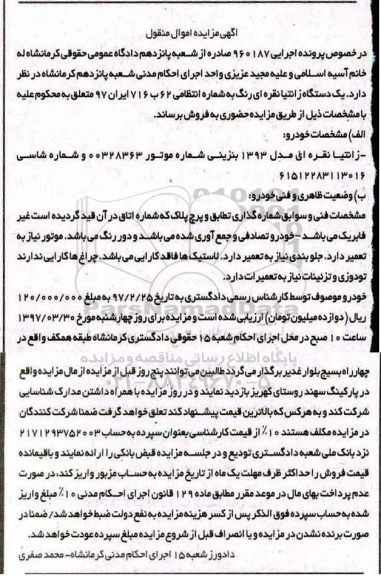 آگهی مزایده اموال منقول
در خصوص پرونده اجرایی ۹۶۰۱۸۷ صادره از شعبه پانزدهم دادگاه عمومی حقوقی کرمانشاه له
خانم آسیه اسلامی و علیه مجید عزیزی واحد اجرای احکام مدنی شعبه پانزدهم کرمانشاه در نظر
دارد. یک دستگاه زانتیا نقره ای رنگ به شماره انتظامی ۶۲ ب ۷۱۶ ایران ۹۷ متعلق به محکوم علیه
با مشخصات ذیل از طریق مزایده حضوری به فروش برساند.
الف) مشخصات خودرو:
-زانتیا نقره ای مدل ۱۳۹۳ بنزینی شماره موتور ۰۰۳۲۸۳۶۳ و شماره شاسی
۶۱۵۱۲۲۸۳۱۱۳۰۱۶
ب) وضعیت ظاهری و فنی خودرو:
مشخصات فنی و سوابق شماره گذاری تطابق و پرچ پلاک که شماره اتاق در آن قید گردیده است غیر
فابریک می باشد - خودرو تصادفی و جمع آوری شده می باشد و دور رنگ می باشد. موتور نیاز به
تعمیر دارد. جلو بندی نیاز به تعمیر دارد. لاستیک ها فاقد کارایی می باشد. چراغ ها کارایی ندارند
تودوزی و تزئینات نیاز به تعمیرات دارد.
خودرو موصوف توسط کارشناس رسمی دادگستری به تاریخ ۹۷/۲/۲۵ به مبلغ ۱۲۰/۰۰۰/۰۰۰
ریال (دوازده میلیون تومان) ارزیابی شده است و مزایده برای روز چهارشنبه مورخ ۱۳۹۷/۰۳/۳۰
ساعت ۱۰ صبح در محل اجرای احکام شعبه ۱۵ حقوقی دادگستری کرمانشاه طبقه همکف واقع در
پایگاه اطلاع رسانی مناقصه و مزایده
چهارراه بسیج بلوار غدیر برگذار می گردد طالبین می توانند پنج روز قبل از مزایده از مال مزایده واقع
در پارکینگ سهند روستای کهریز بازدید نمایند و در روز مزایده با همراه داشتن مدارک شناسایی
شرکت کند و به هرکس که بالاترین قیمت پیشنهاد کند تعلق خواهد گرفت ضمنا شرکت کنندگان
در مزایده مکلف هستند ۱۰٪ از قیمت کارشناسی بعنوان سپرده به حساب ۲۱۷۱۲۹۳۷۵۲۰۰۳
نزد بانک ملی شعبه دادگستری تودیع و در جلسه مزایده قبض بانکی را ارائه نمایند و باقیمانده
قیمت فروش را حداکثر ظرف مهلت یک ماه از تاریخ مزایده به حساب مزبور واریز کند، در صورت
عدم پرداخت بهای مال در موعد مقرر مطابق ماده ۱۲۹ قانون اجرای احکام مدنی ۱۰٪ مبلغ واریز
شده به حساب سپرده فوق الذکر پس از کسر هزینه مزایده به نفع دولت ضبط خواهد شد/ ضمنا در
صورت برنده نشدن در مزایده و یا انصراف قبل از شروع مزایده مبلغ سپرده عودت خواهد شد.
دادورز شعبه ۱۵ اجرای احکام مدنی کرمانشاه- محمد صفری